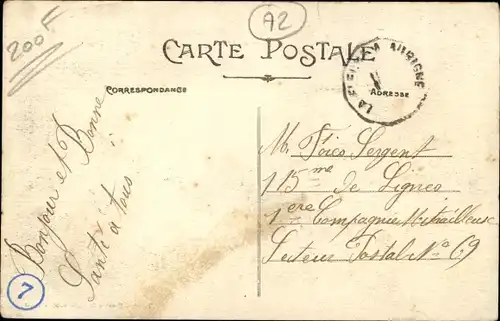 200F
A2
CARTE POSTALE
CORRESPONDANCE
ADRESSE
Bonjour et Bonne
Santé à tous
7
M. Sergent
115me de Lignes
1ere Compagnie Mitrailleuse
Secteur Postal No 69